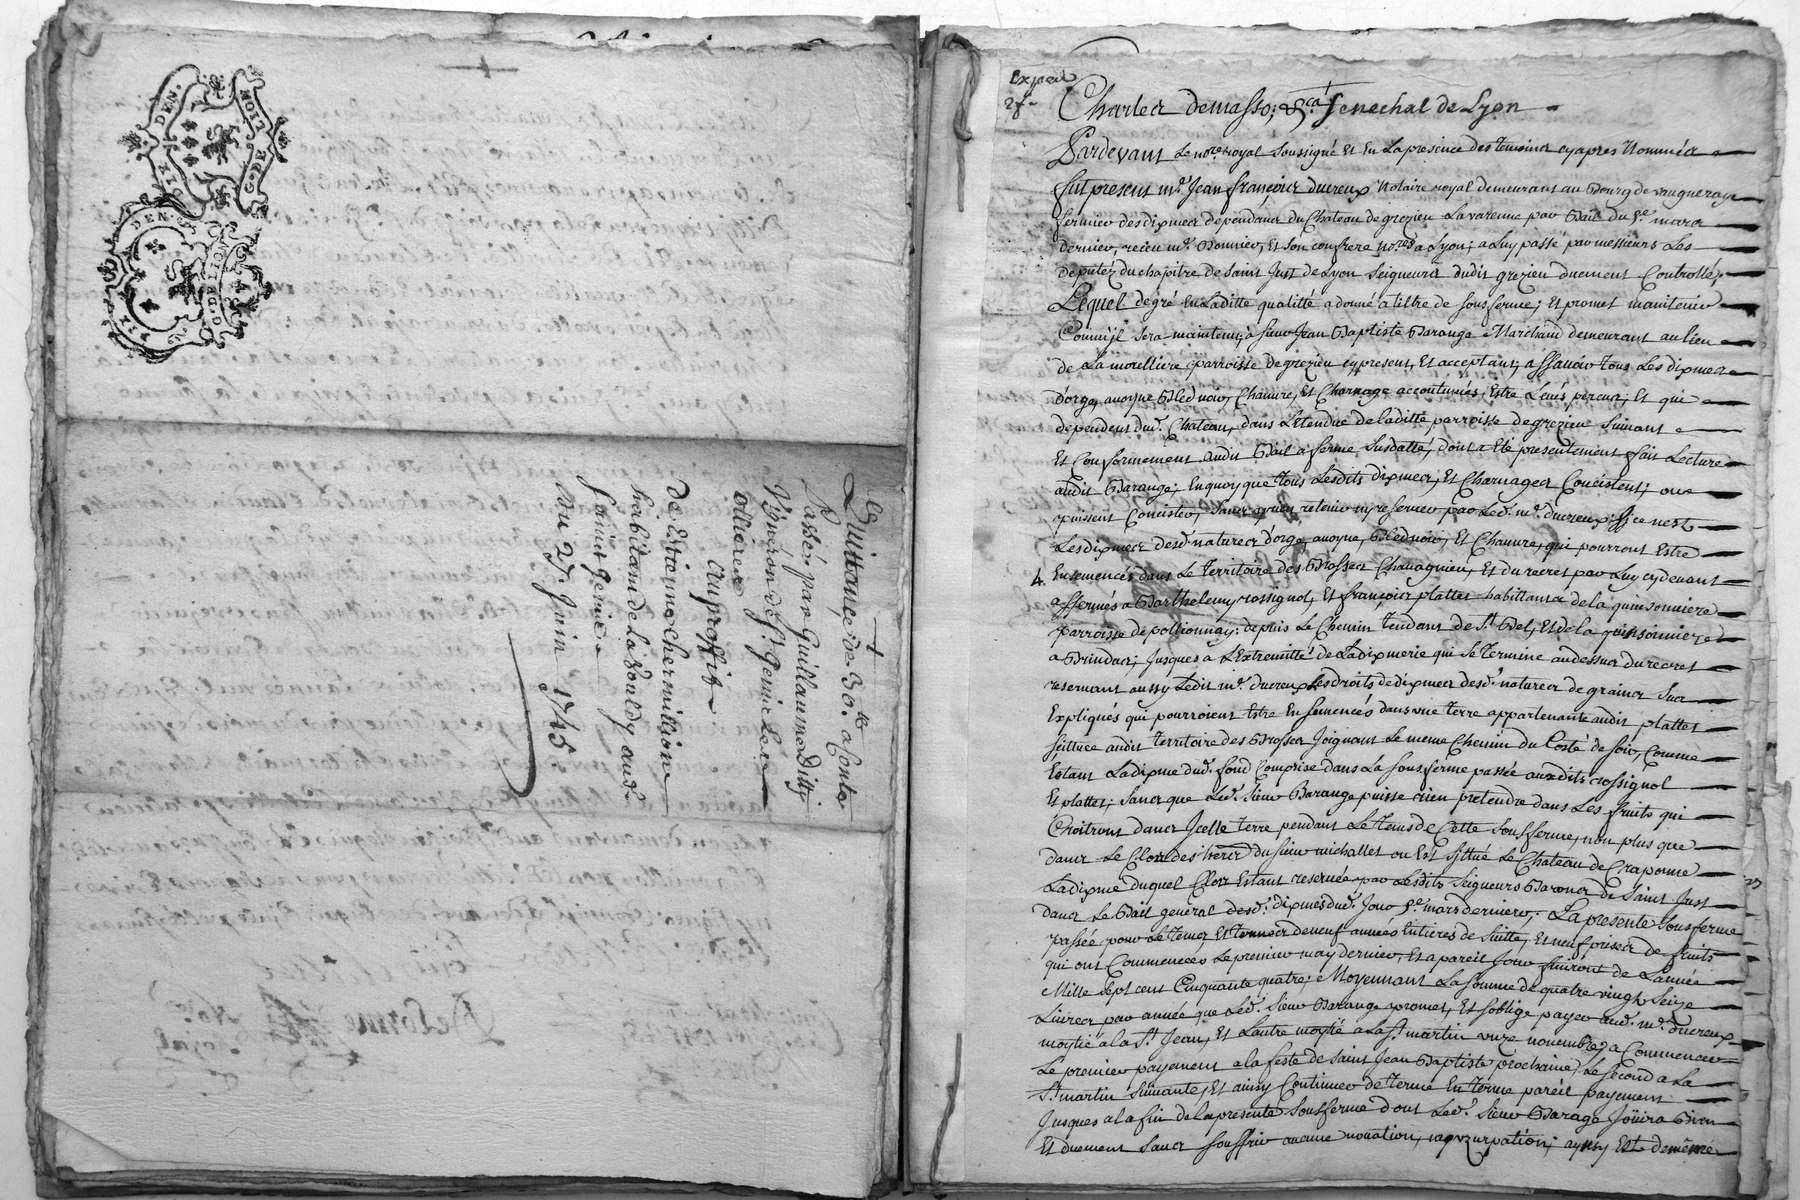 DIX DEN.
G. DE LION
SIX DEN.
G. DE LION
Quittance de 36.lt a Conte
Passé par Guillaume Ditty
Vigneron de St. Genis Les
ollieres
au proffit
de Estienne Chermillion
habitant de La
Saint genis
Du 27. Juin 1745.
Delorme
Exped
Charles demasso, &ca Senechal de Lyon
Pardevant Le nore. royal soussigné Et En La presence des temoins cyapres Nommés
fut present me. Jean françois ducreux Notaire royal demeurant au Bourg de vaugneray
fermier des dixmes dependans du Chateau de grezieu Lavarenne par Bail du 9e. mars
dernier, receu me. Bonnier, Et son confrere nores. a Lyon, a Luy passé par messieurs Les
deputez du chapitre de Saint Just de Lyon Seigneurs dudit grezieu duement Controllé,
Lequel de gré En Laditte qualitté a donné a tiltre de sousferme, Et promet maintenir
Comm'il sera maintenu, a sieur Jean Baptiste Barange Marchand demeurant au lieu
de La mouilliere parroisse de grezieu cy present, Et acceptant, assavoir tous Les dixmes
d'orge, avoyne Bled noir, Chanvre, Et Charnage accoutumés, Estre Levés, percus, Et qui
dependent dud. Chateau, dans L'Etendue de laditte parroisse de grezieu suivant
Et Conformement audit Bail a ferme susdatté, dont a Eté presentement fait Lecture
audit Barange; En quoy que Tous Lesdits dixmes, Et Charnages Concistent, ou
puissent Concister, sans ny rien retenir ny reserver par Led. me. ducreux, si ce nest
Les dixmes desd. natures d'orge, avoyne, Bled noir, Et Chanvre, qui pourront Estre
4. Ensemencés dans Le Territoire des Brosses Chavagnieu, Et du recret par Luy cy devant
affermés a Barthelemy rossignol, Et françois plattet habittans de la quinsonniere
parroisse de pollionnay: depuis Le Chemin tendant de St. Bel, Et de la quinsonniere
a Brindas, Jusques a L'Extremitté de La dixmerie qui se termine audessus du recret
reservant aussy Ledit me. ducreux Les droits de dixmes desd. natures de grains sus
Expliqués qui pourroient Estre Ensemencés dans une terre appartenante audit plattet
scittuée audit territoire des Brosses Joignant Le meme Chemin du Costé de soir, Comme
Estant La dixme dud. fond Comprise dans La sousferme passée auxdits rossignol
Et plattet, sans que Led. sieur Barange puisse rien pretendre dans Les fruits qui
Croitront dans Jcelle terre pendant Le tems de Cette sousferme, non plus que
dans Le Clos des hoirs du sieur michallet ou Est sittué Le Chateau de Craponne
La dixme duquel Clos Estant reservée par Lesdits Seigneurs Barons de Saint Just
dans Le Bail general desd. dixmes dud. Jour 9e. mars dernier. La presente sousferme
passée pour Le tems Et termes de neuf années Entieres de suitte, Et neuf prises de fruits
qui ont Commencés Le premier may dernier, Et a pareil Jour finiront de L'année
Mille sept cent Cinquante quatre, Moyennant La somme de quatre vingt seize
Livres par année que Led. sieur Barange promet, Et s'oblige payer aud. me. ducreux
moytié a la St. Jean, Et L'autre moytié a La St. martin onze novembre, a Commencer
Le premier payement a la feste de Saint Jean Baptiste prochaine, Le second a La
St. martin suivante, Et ainsy Continuer de terme En terme pareil payement
Jusques a la fin de la presente sousferme dont Led. sieur Barage Joüira Bien
Et duement sans souffrir aucune novation, ny uzurpation, aynsy Est de même